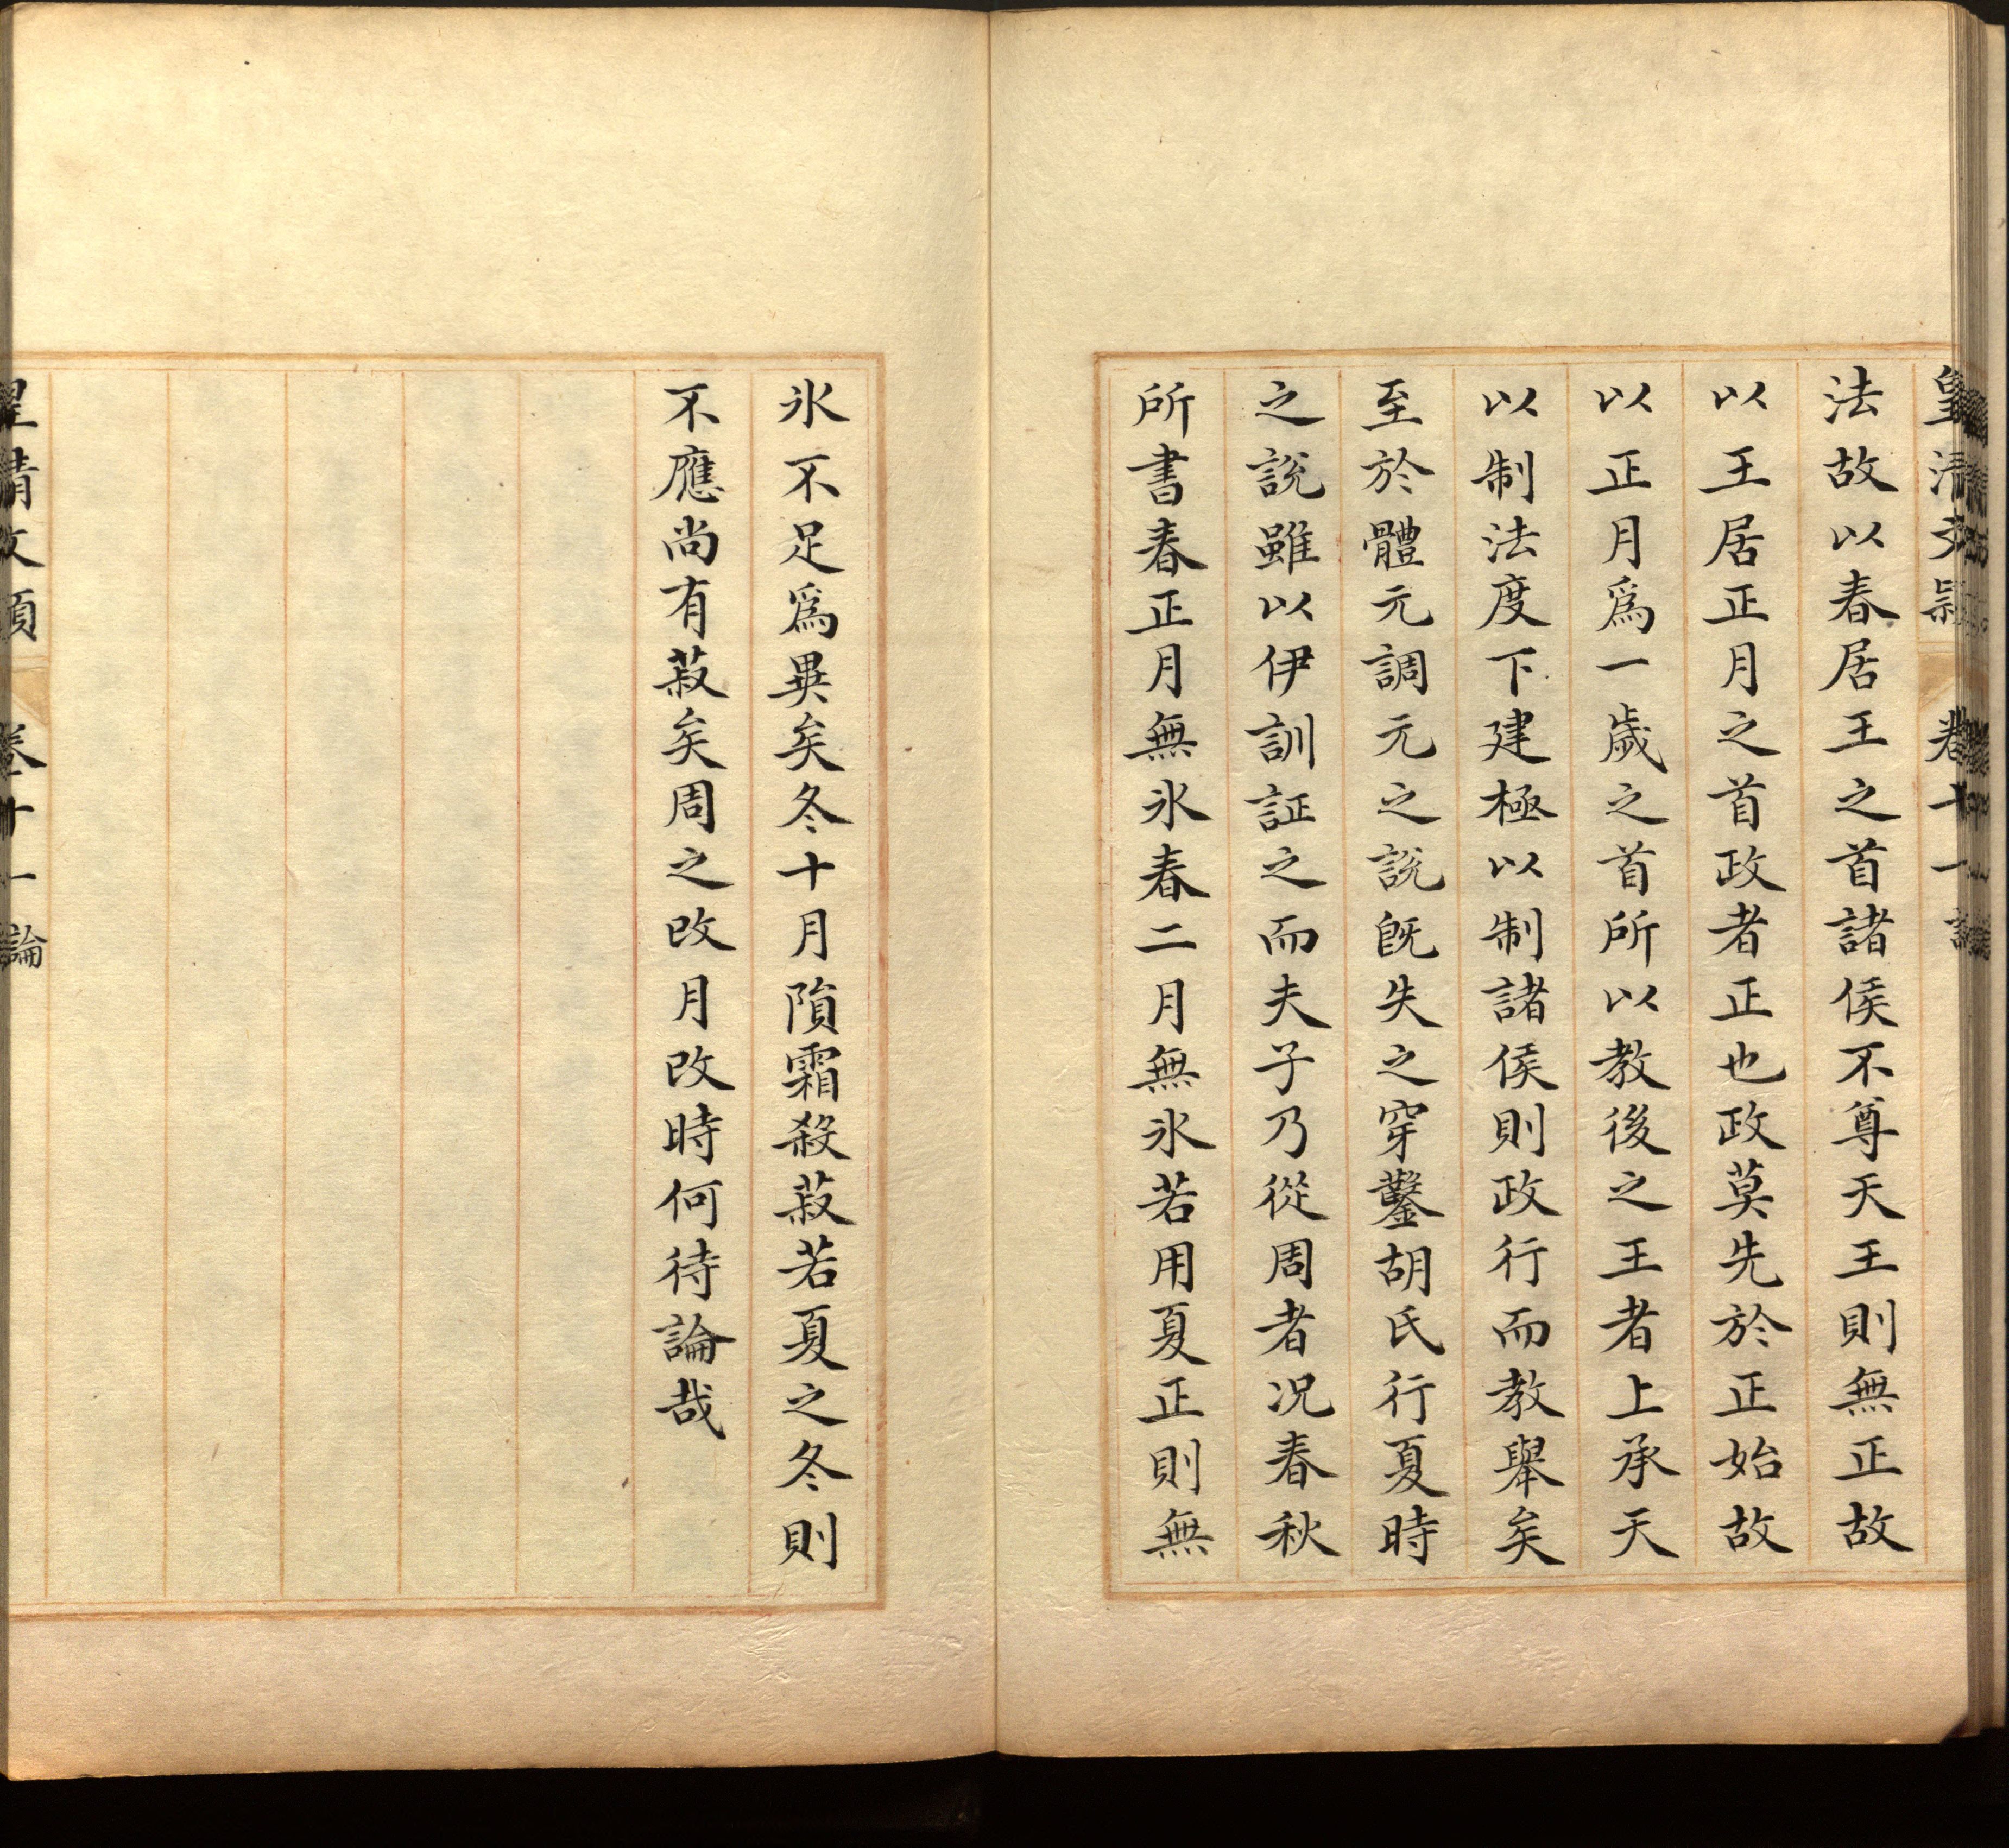 皇清文穎 卷十一 論
法故以春居王之首諸侯不尊天王則無正故
以王居正月之首政者正也政莫先於正始故
以正月爲一歲之首所以教後之王者上承天
以制法度下建極以制諸侯則政行而教舉矣
至於體元調元之說旣失之穿鑿胡氏行夏時
之說雖以伊訓証之而夫子乃從周者况春秋
所書春正月無氷春二月無氷若用夏正則無
氷不足爲異矣冬十月隕霜殺菽若夏之冬則
不應尚有菽矣周之改月改時何待論哉
皇清文穎 卷十一 論